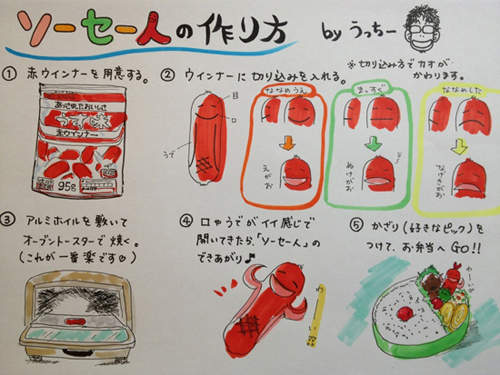 ソーセー人の作り方
by うっちー
① 赤ウインナーを用意する。
うす味
赤ウインナー
95g
② ウインナーに切り込みを入れる。
※切り込み方でカオが
かわります。
目
口
うで
ななめうえ
えがお
まっすぐ
ぬけがお
ななめした
なげきがお
③ アルミホイルを敷いて
オーブントースターで焼く。
(これが一番楽です♡)
④ 口やうでがイイ感じで
開いてきたら、「ソーセー人」の
できあがり♪
⑤ かざり(好きなピック)を
つけて、お弁当へGO!!